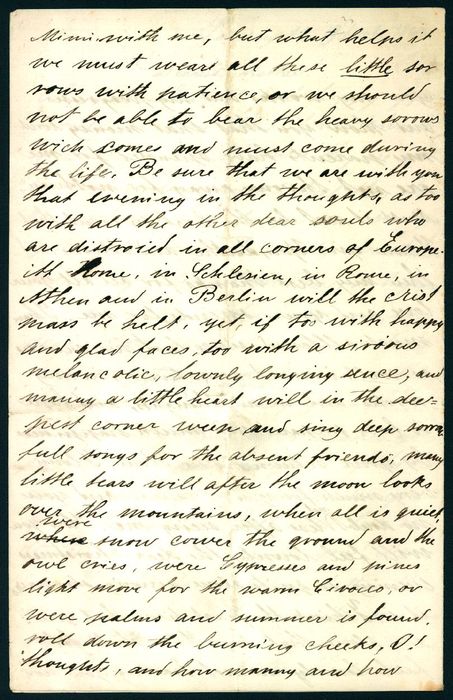 Mimi with me, but what helps it
we must weare all these little sor
rows with patience, or we should
not be able to bear the heavy sorows
wich comes and must come during
the life. Be sure that we are with you
that evening in the thoughts, as too
with all the other dear souls who
are distroied in all corners of Europe.
ith Home, in Schlesien, in Rome, in
Athen and in Berlin will the crist
mass be helt, yet, if tos with happy
and glad faces, too with a
melancolic, lownly longing sence, and
manny a little heart will in the dee=
pest corner ween and sing deep sorrow
full songs for the absent friends; many
little tears will after the moon looks
over the mountains, when all is quiet,
were
where snow cower the ground and the
owl cries, were Cypresses and pines
light move for the warm Cirocco, or
were palms and summer is found,
roll down the burning cheeks, O!
thoughts, and how manny and how